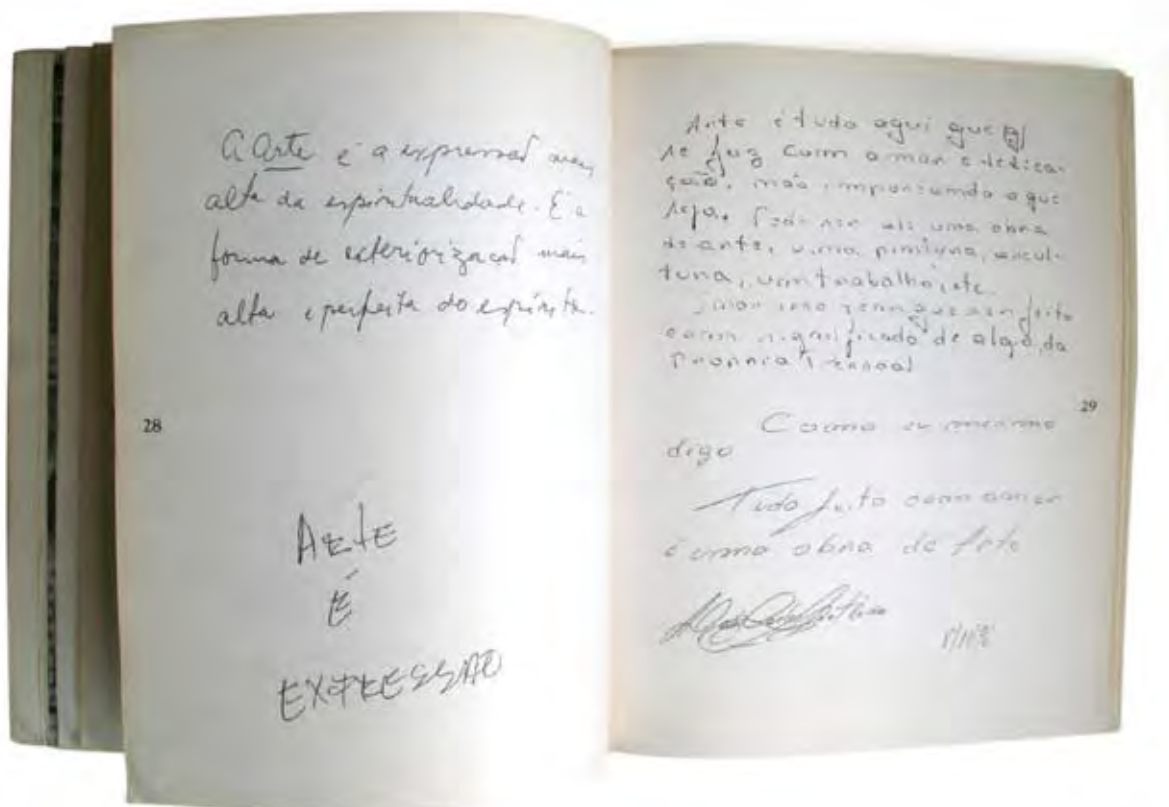 A Arte é a expressão mais
alta da espiritualidade. É a
forma de exteriorização mais
alta e perfeita do espírito.
28
ARTE
É
EXPRESSÃO
Arte é tudo aqui que
se faz com amor e dedica-
ção, não importando o que
seja. Pode ser até uma obra
de arte, uma pintura, escul-
tura, um trabalho, etc.
, mas isso tem que ser feito
com significado de algo, da
Propria Pessoa!
29
Como eu mesmo
digo
Tudo feito com amor
é uma obra de Arte